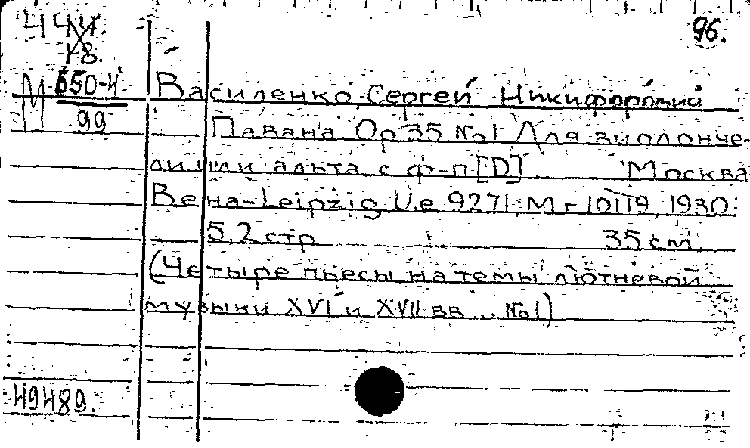 96.
18.
М 650-4
99
Василенко, Сергей Никифорович
Павана Op 35 №1 Для виолонче-
ли или альта с ф-п [D] Москва
Вена-Leipzig U.e 9271; Мг 10119, 1930.
5,2 стр 35 см.
(Четыре пьесы на темы лютневой
музыки XVI и XVII вв... №1)
49489.